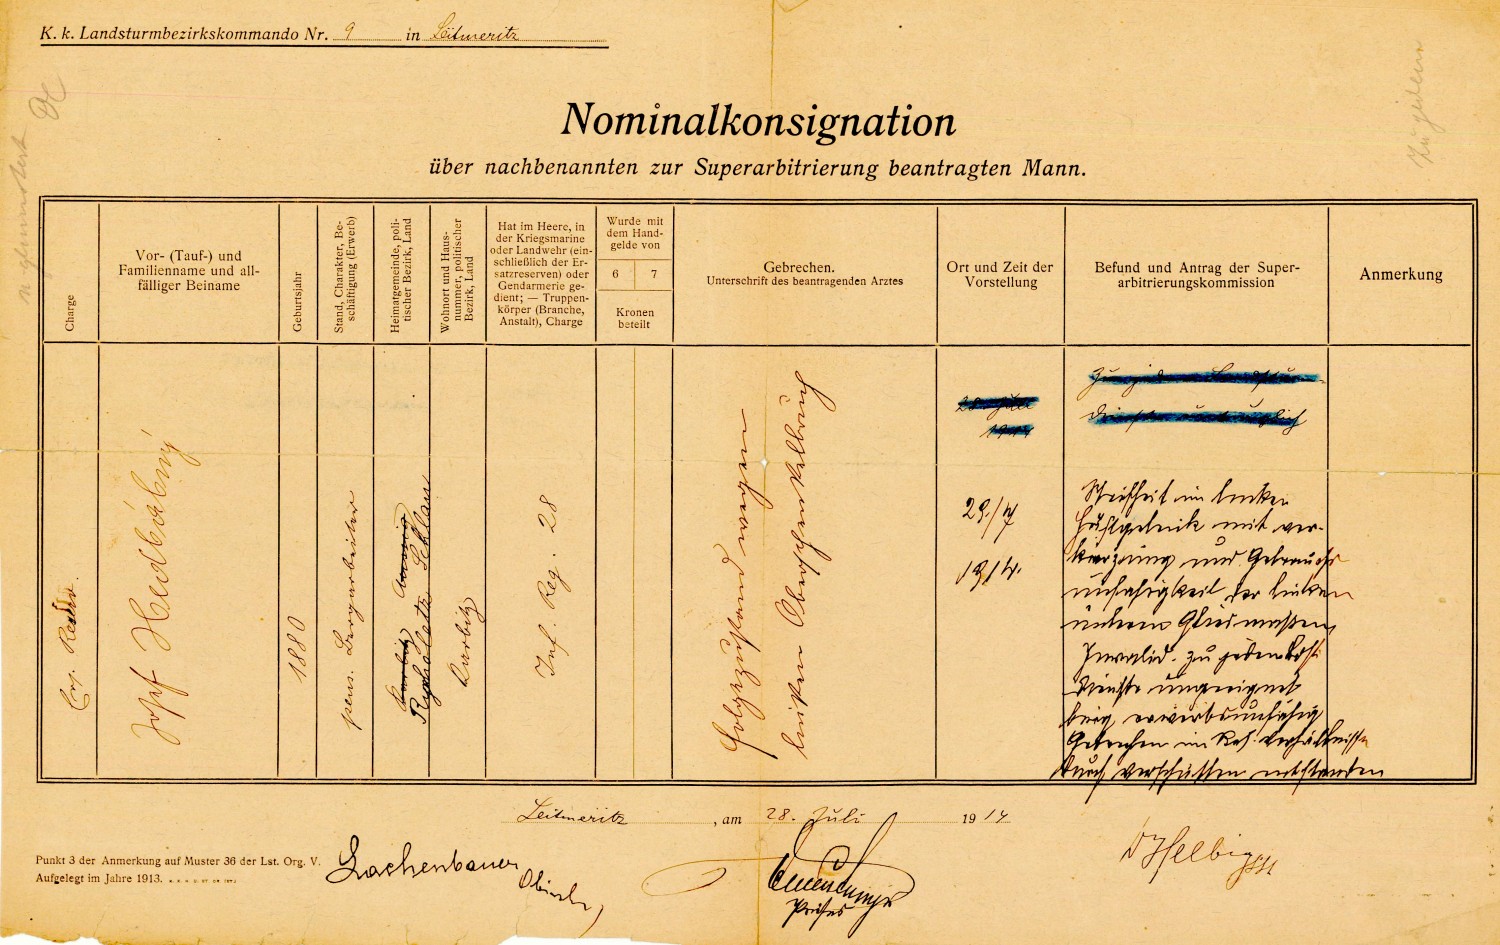 K. k. Landsturmbezirkskommando Nr. 9 in Leitmeritz
Nominalkonsignation
über nachbenannten zur Superarbitrierung beantragten Mann.
Charge
Vor- (Tauf-) und
Familienname und all-
fälliger Beiname
Geburtsjahr
Stand, Charakter, Be-
schäftigung (Erwerb)
Heimatgemeinde, poli-
tischer Bezirk, Land
Wohnort und Haus-
nummer, politischer
Bezirk, Land
Hat im Heere, in
der Kriegsmarine
oder Landwehr (ein-
schließlich der Er-
satzreserven) oder
Gendarmerie ge-
dient; — Truppen-
körper (Branche,
Anstalt), Charge
Wurde mit
dem Hand-
gelde von
6 7
Kronen
beteilt
Gebrechen.
Unterschrift des beantragenden Arztes
Ort und Zeit der
Vorstellung
Befund und Antrag der Super-
arbitrierungskommission
Anmerkung
Josef
1880
pens. Bergarbeiter
Schlan
Karbitz
Inf. Reg. 28
Folgezustand wegen
linken Oberschenkelbruch
28. Juli
1914
29./7
1914.
Steifheit im linken
Hüftgelenk mit Ver-
kürzung und Gebrauchs
unfähigkeit der linken
unteren Gliedmaßen,
Invalid. zu jedem
Dienste ungeeignet
bürg. erwerbsunfähig
Gebrechen im verhältnisse
durch Verschütten entstanden
Leitmeritz, am 28. Juli 1914
Punkt 3 der Anmerkung auf Muster 36 der Lst. Org. V.
Aufgelegt im Jahre 1913.
Lachenbauer
Oberst
Präses
Dr Helbig